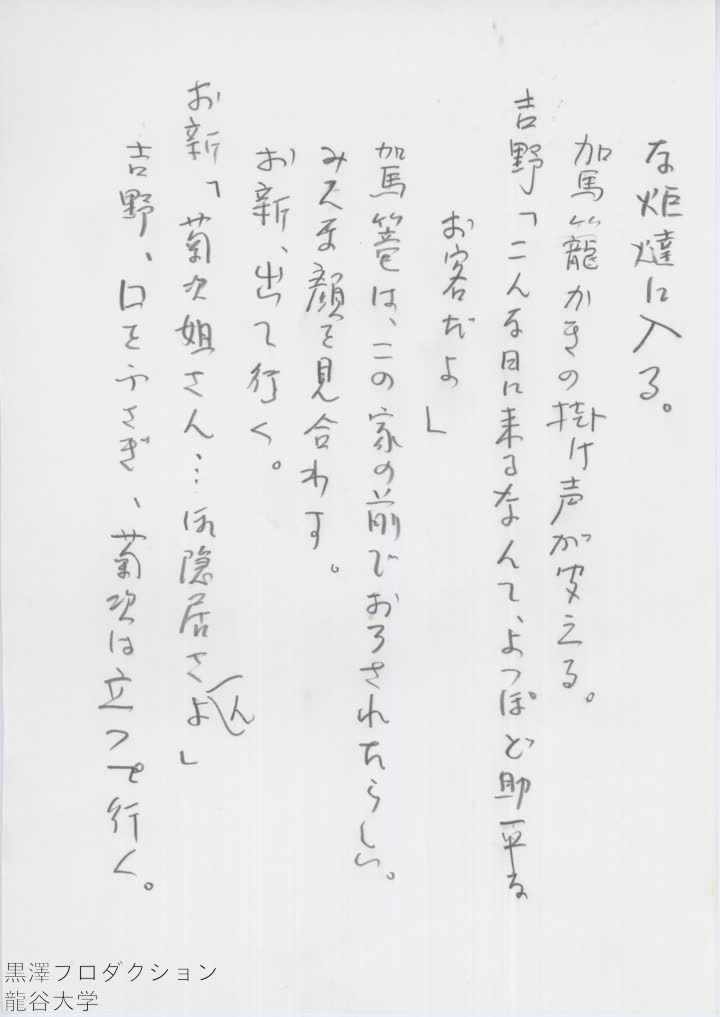 な炬燵に入る。
駕籠かきの掛け声が変える。
吉野「こんな日に来るなんて、よっぽど助平な
お客だよ」
駕篭は、この家の前でおろされたらしい。
みんな顔を見合わす。
お新、出て行く。
お新「菊次姐さん…ほ隠居さんよ」
吉野、口をふさぎ、菊次は立って行く。
黒澤プロダクション
龍谷大学